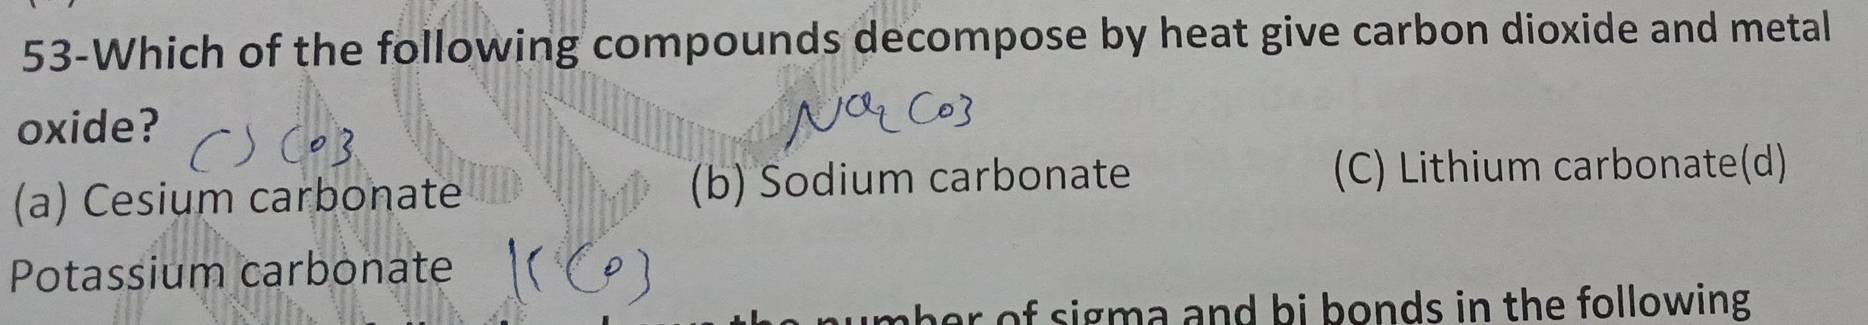 53-Which of the following compounds decompose by heat give carbon dioxide and metal
oxide?
Na2 CO3
CS CO3
(a) Cesium carbonate (b) Sodium carbonate (C) Lithium carbonate(d)
Potassium carbonate K CO3
number of sigma and bi bonds in the following